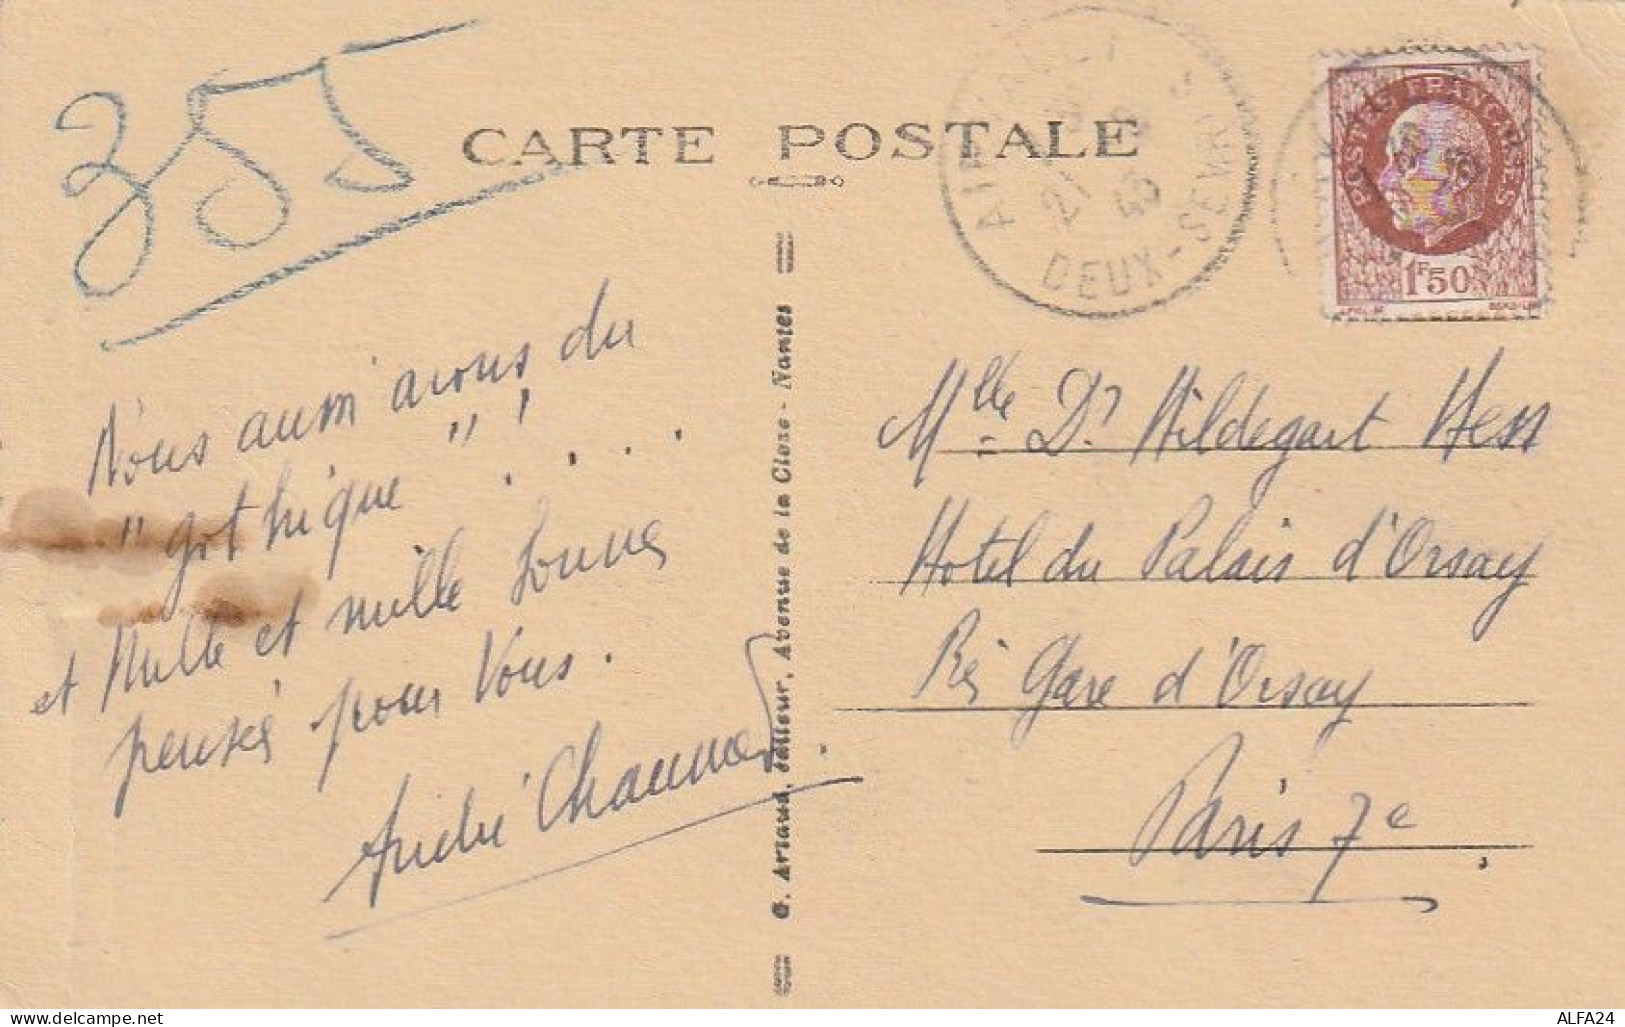 355
CARTE POSTALE
AIRVAULT
21
43
DEUX-SEVRES
POSTES FRANÇAISES
1F50
Nous aussi avons du
"gothique" ! . . . .
et mille et mille bonnes
pensées pour Vous.
André
G. Artaud, Editeur, Avenue de la Close - Nantes
Mlle Dr Hildegart Hess
Hotel du Palais d'Orsay
Gare d'Orsay
Paris 7e
delcampe.net
ALFA24